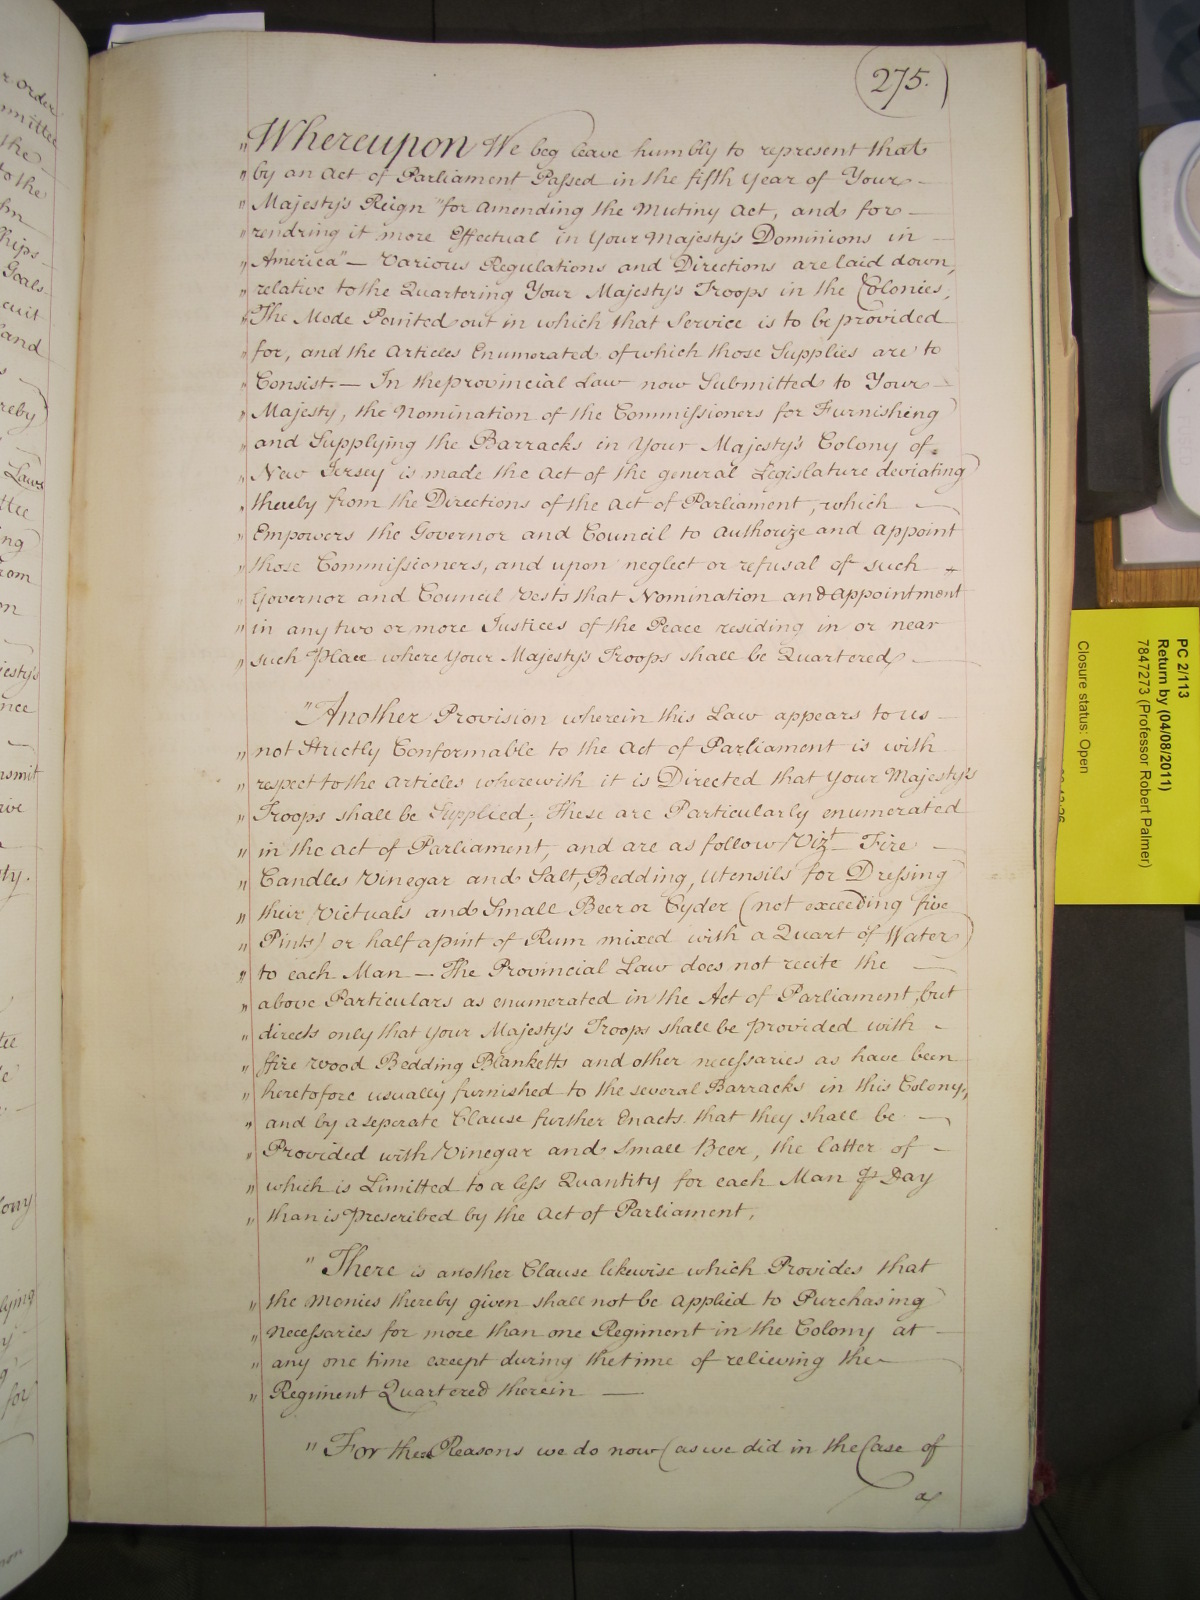 275.
" Whereupon We beg leave humbly to represent that
" by an Act of Parliament Passed in the fifth Year of Your
" Majesty's Reign "for Amending the Mutiny Act, and for
" rendring it more Effectual in Your Majesty's Dominions in
" America" — Various Regulations and Directions are laid down,
" relative to the Quartering Your Majesty's Troops in the Colonies,
" The Mode Pointed out in which that Service is to be provided
" for, and the Articles Enumerated of which those Supplies are to
" Consist. — In the provincial Law now Submitted to Your
" Majesty, the Nomination of the Commissioners for Furnishing
" and Supplying the Barracks in Your Majesty's Colony of
" New Jersey is made the Act of the general Legislature deviating
" thereby from the Directions of the Act of Parliament, which
" Empowers the Governor and Council to Authorize and Appoint
" those Commissioners, and upon neglect or refusal of such
" Governor and Council Vests that Nomination and Appointment
" in any two or more Justices of the Peace residing in or near
" such Place where Your Majesty's Troops shall be Quartered
" Another Provision wherein this Law appears to us
" not Strictly Conformable to the Act of Parliament is with
" respect to the Articles wherewith it is Directed that Your Majesty's
" Troops shall be Supplied; These are Particularly enumerated
" in the Act of Parliament, and are as follow Vizt. Fire
" Candles Vinegar and Salt, Bedding, Utensils for Dressing
" their Victuals and Small Beer or Cyder (not exceeding five
" Pints) or half a pint of Rum mixed with a Quart of Water
" to each Man — The Provincial Law does not recite the
" above Particulars as enumerated in the Act of Parliament, but
" directs only that Your Majesty's Troops shall be provided with
" ffire wood Bedding Blanketts and other necessaries as have been
" heretofore usually furnished to the several Barracks in this Colony,
" and by a seperate Clause further Enacts that they shall be
" Provided with Vinegar and Small Beer, the latter of
" which is Limitted to a less Quantity for each Man ⅌ Day
" than is Prescribed by the Act of Parliament.
" There is another Clause likewise which Provides that
" the Monies thereby given shall not be Applied to Purchasing
" Necessaries for more than one Regiment in the Colony at
" any one time except during the time of relieving the
" Regiment Quartered therein —
" For these Reasons we do now (as we did in the Case of
a
PC 2/113
Return by (04/08/2011)
7847273 (Professor Robert Palmer)
Closure status: Open